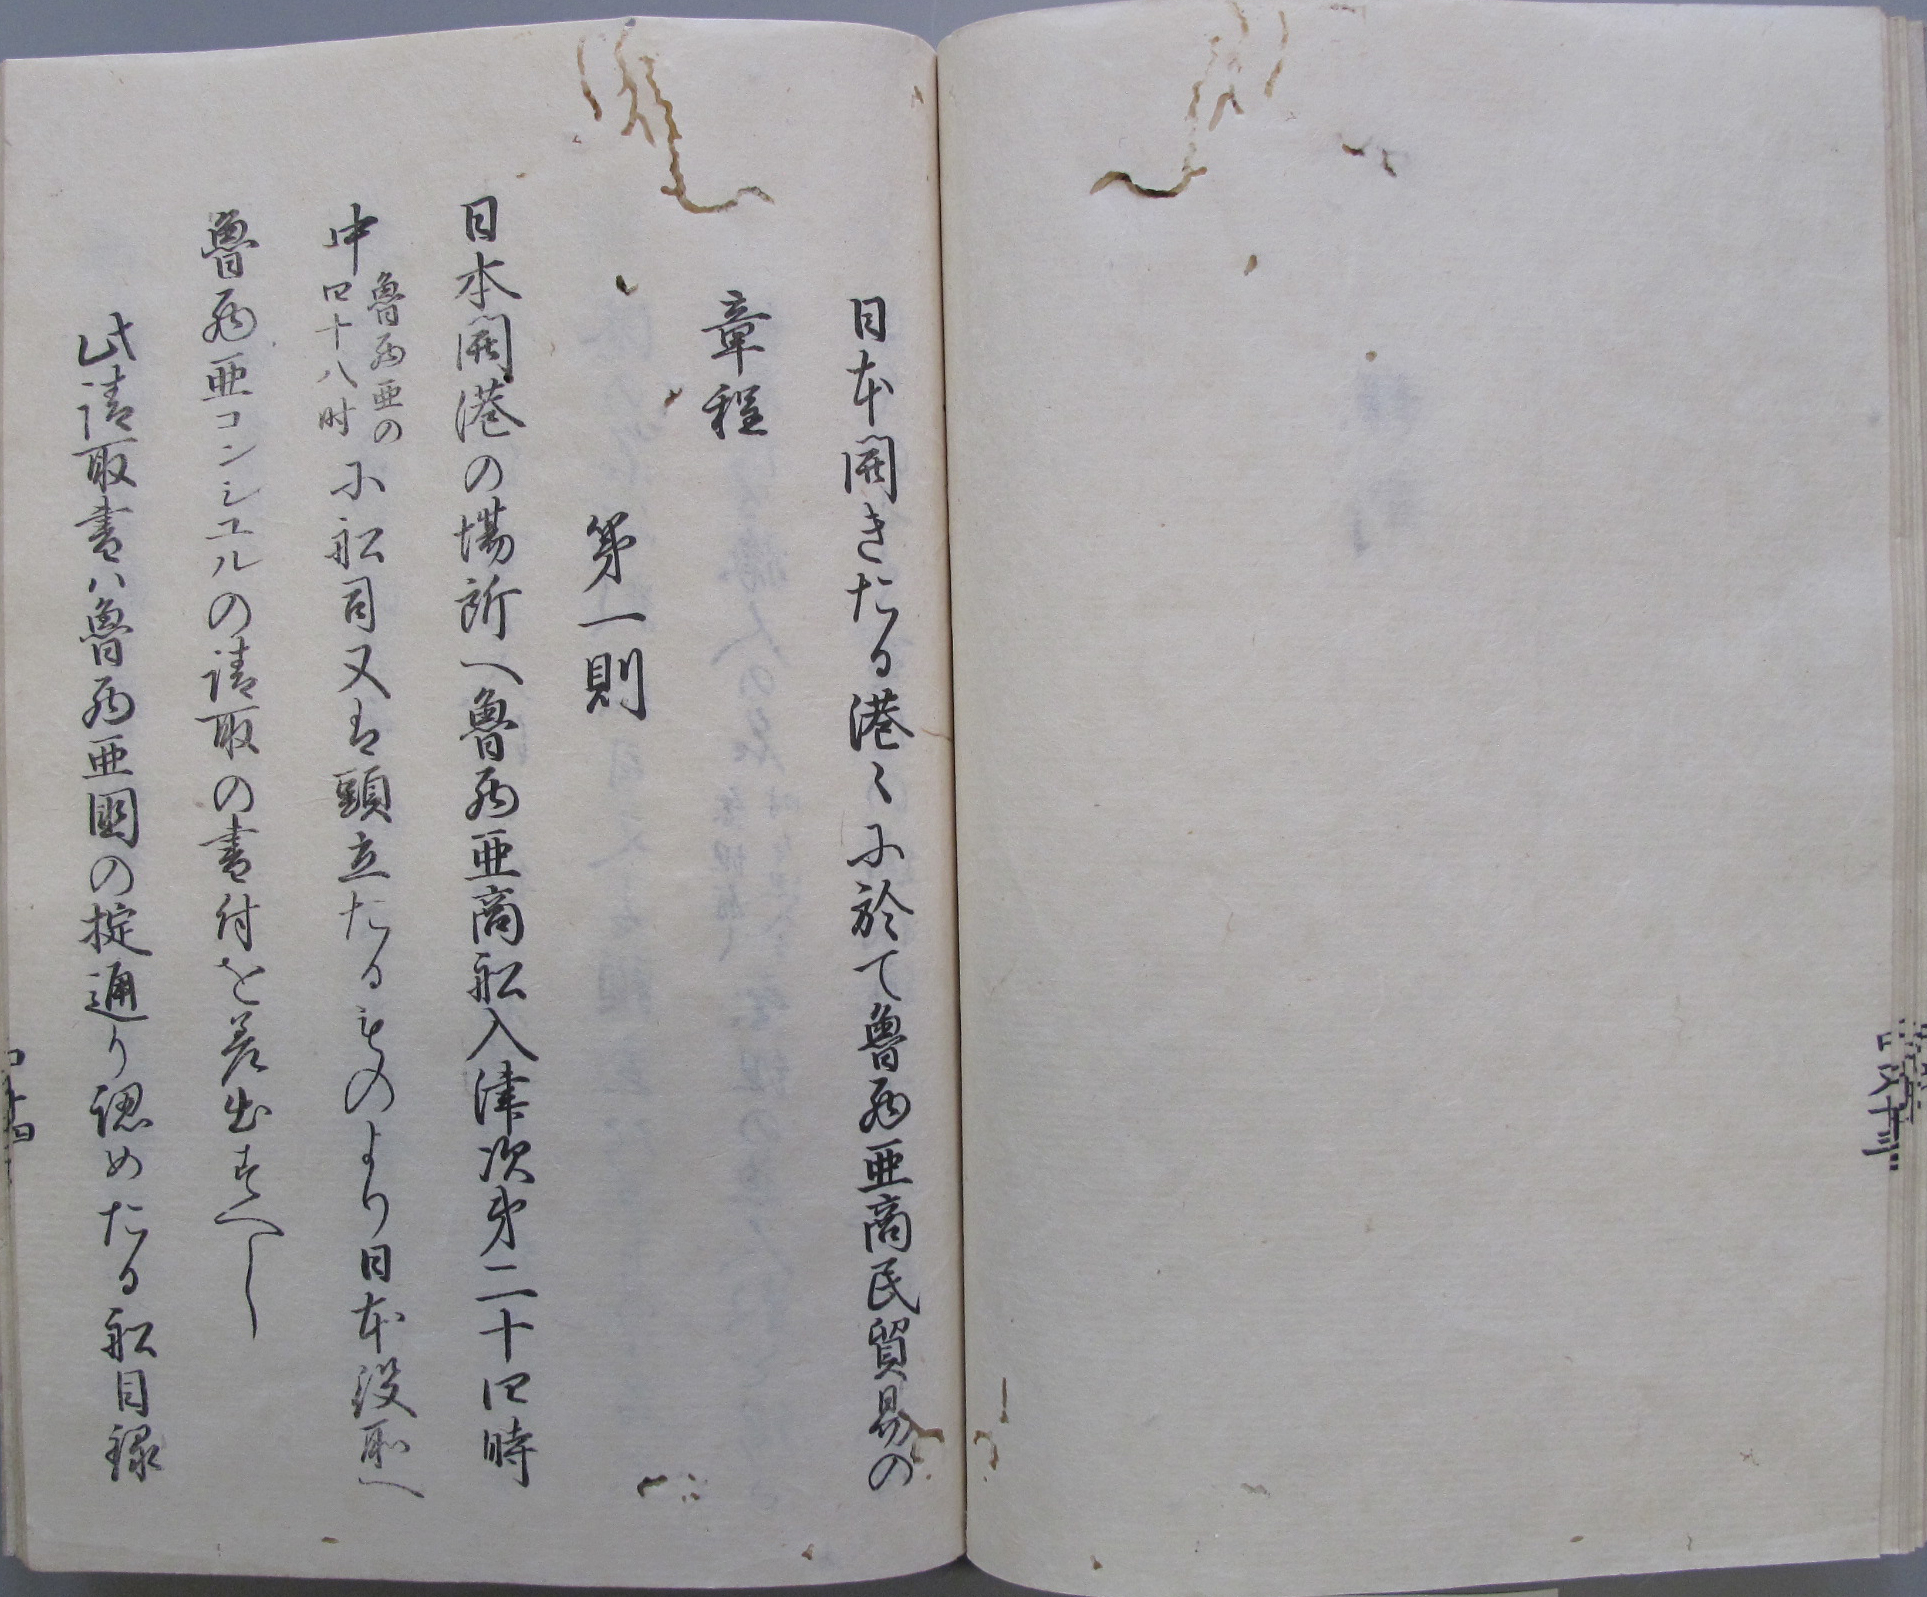 日本開きたる港〻に於て魯西亜商民貿易の
章程
第一則
日本開港の場所へ魯西亜商船入津次第二十四時
中
魯西亜の
四十八时
に船司又は頭立たるものより日本役所へ
魯西亜コンシユルの請取の書付を差出すへし
此請取書ハ魯西亜国の掟通り認めたる船目録